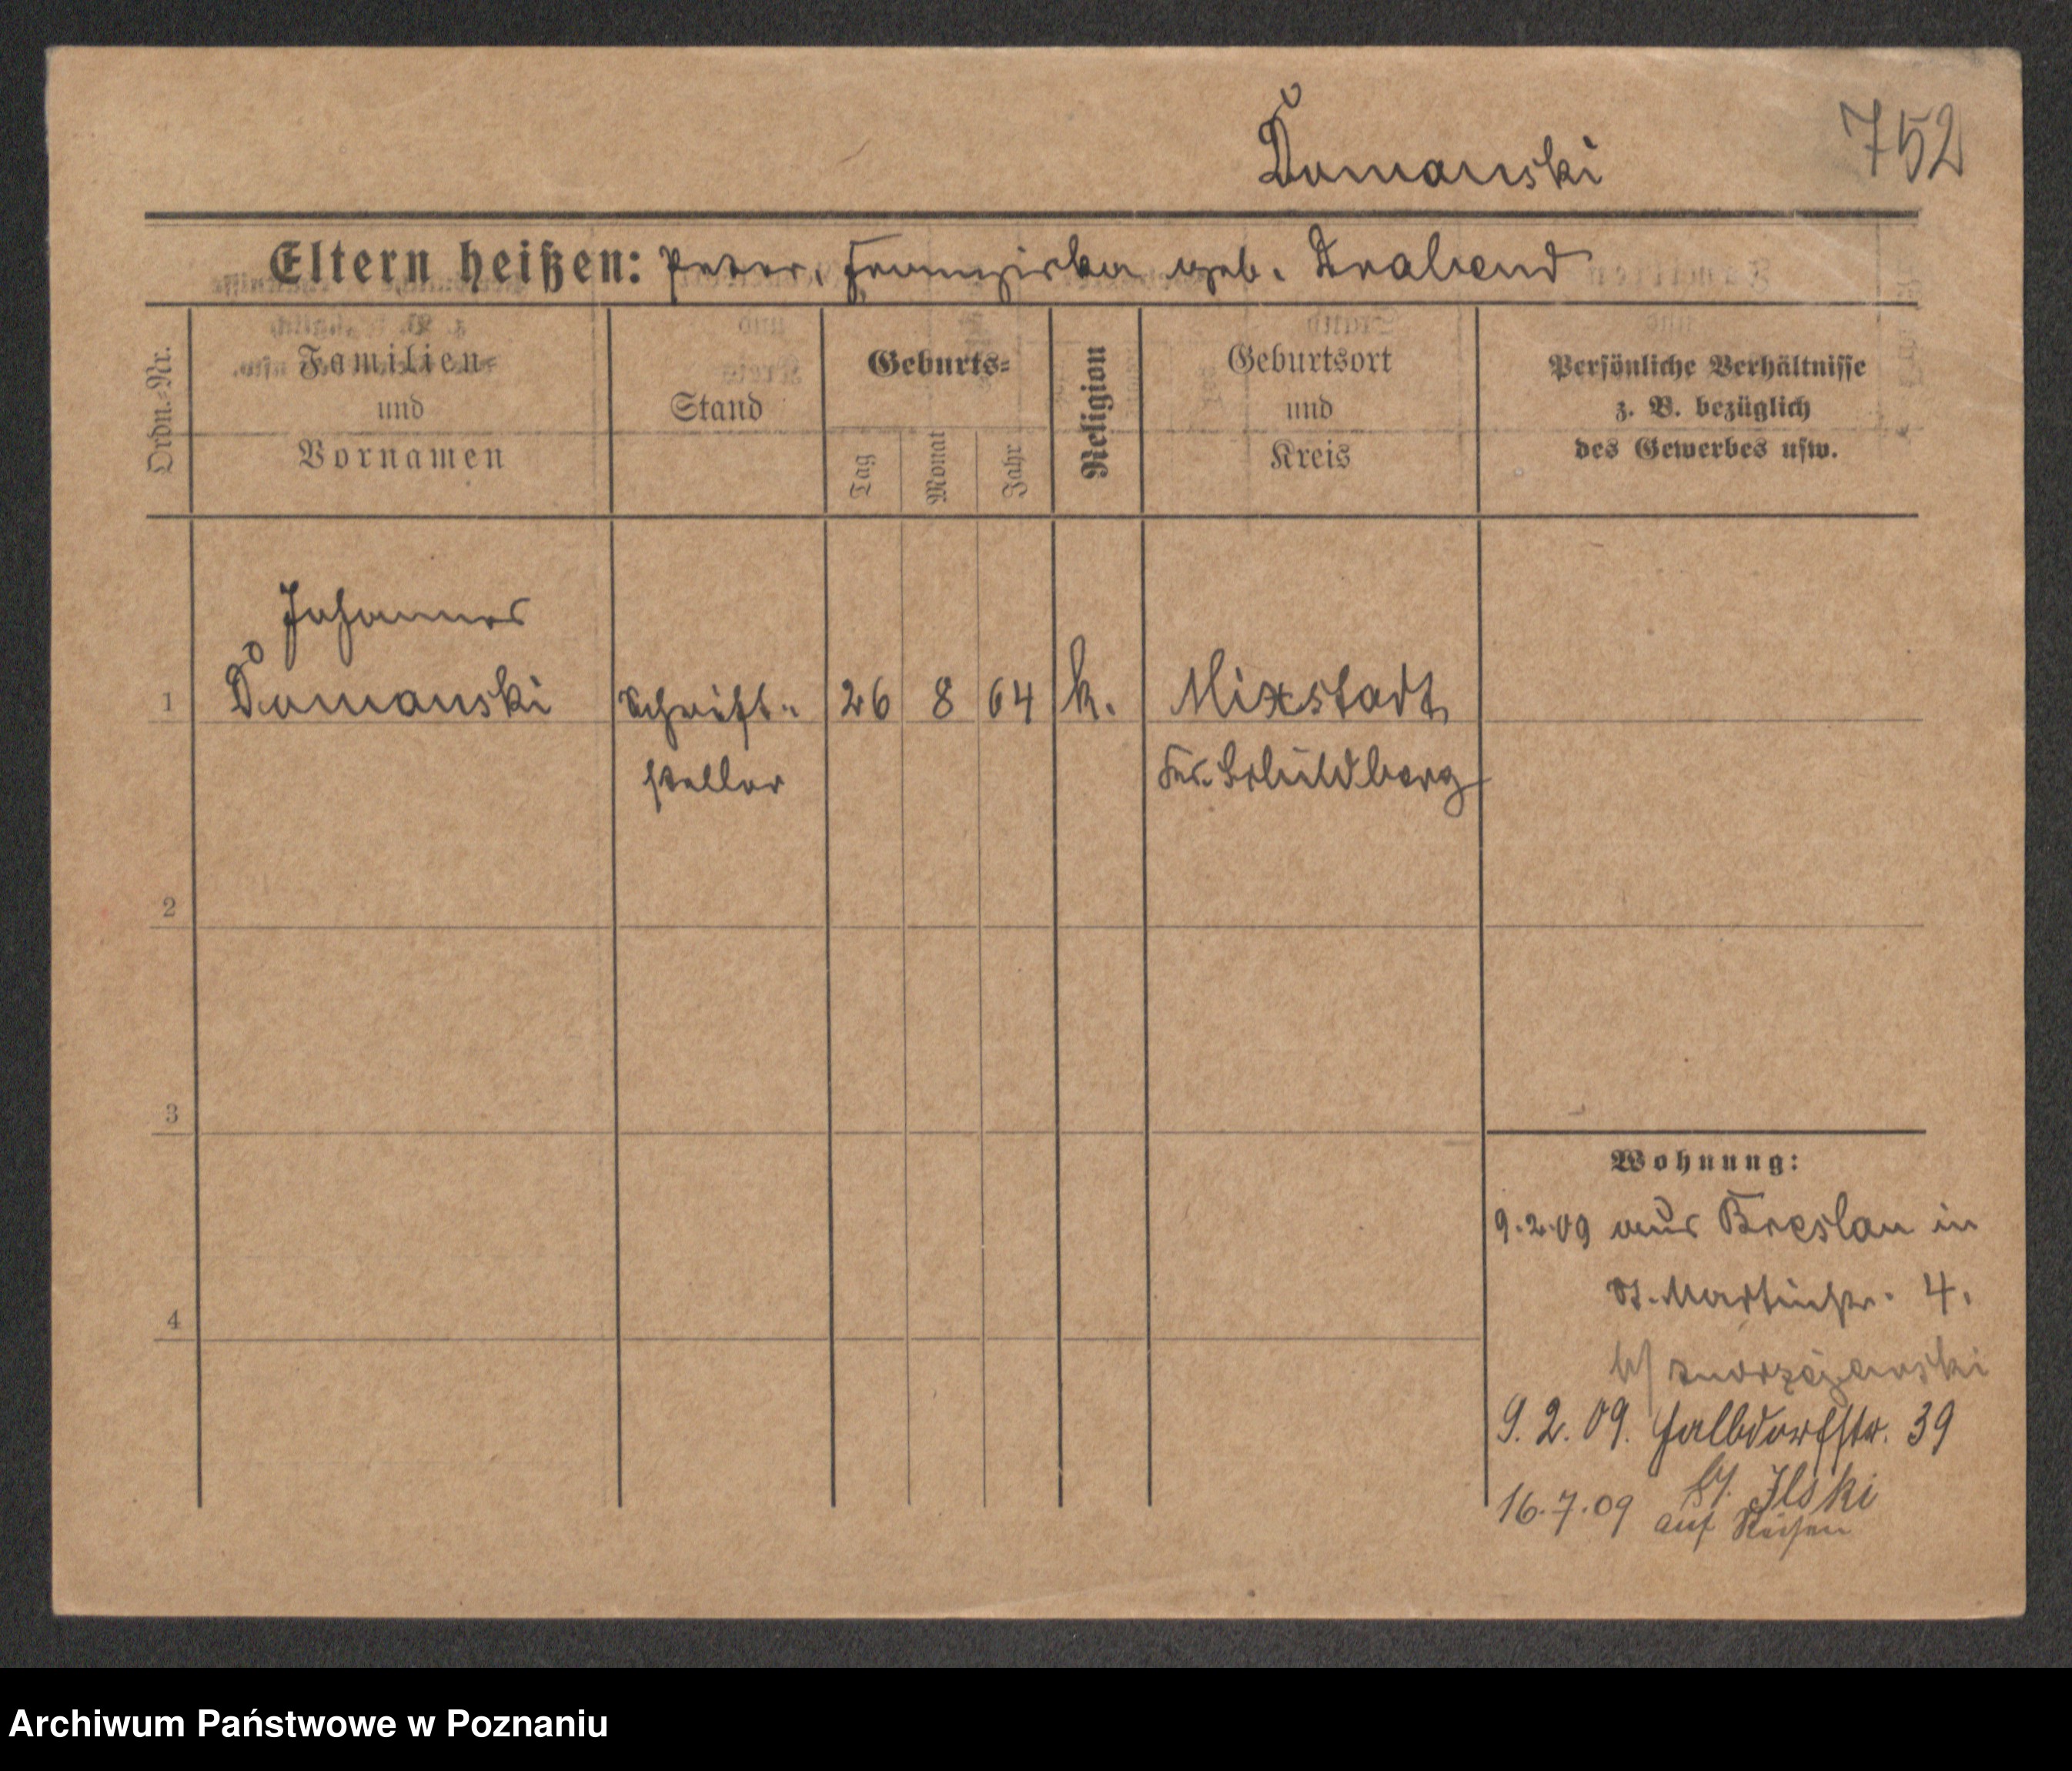 Domanski
752
Eltern heißen: Peter, Franziska geb. Drabend
Ordn.-Nr.
Familien-
und
Vornamen
Stand
Geburts-
Tag
Monat
Jahr
Religion
Geburtsort
und
Kreis
Persönliche Verhältnisse
z. B. bezüglich
des Gewerbes usw.
1
Johannes
Domanski
Schrift-
steller
26
8
64
k.
Mixstadt
Krs. Schildberg
2
3
4
Wohnung:
9.2.09 aus Breslau in
St. Martinstr. 4.
b/
9.2.09. Halbdorfstr. 39
b/. Ilski
16.7.09 auf Reisen
Archiwum Państwowe w Poznaniu